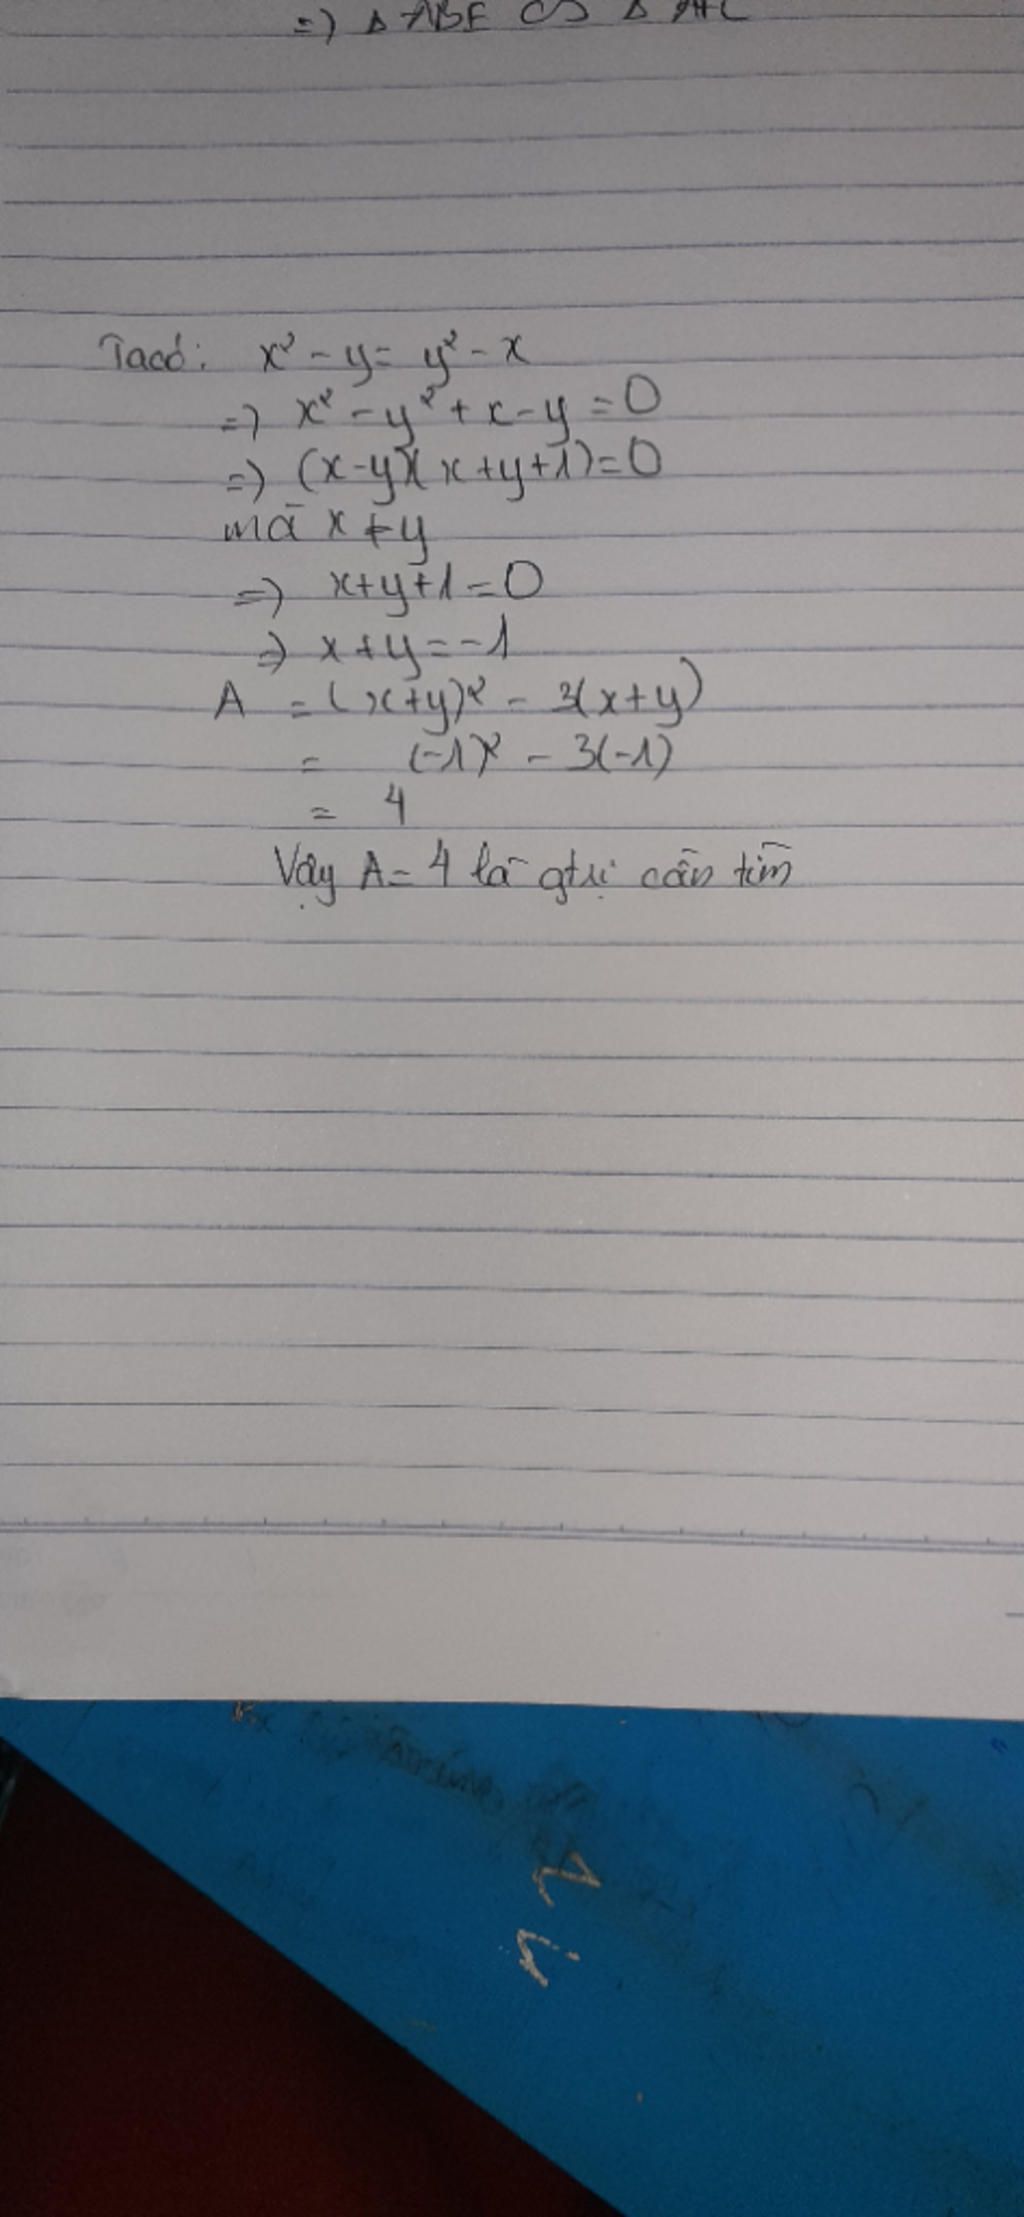 =) Δ ABE ∽ Δ
Ta có: x² - y = y² - x
=) x² - y² + x - y = 0
=) (x-y)(x+y+1)=0
mà x ≠ y
=) x+y+1=0
=) x+y=-1
A = (x+y)² - 3(x+y)
= (-1)² - 3(-1)
= 4
Vậy A = 4 là gtrị cần tìm